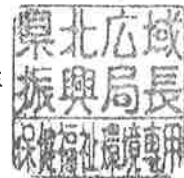 県北広域
振興局長
保健福祉環境専用